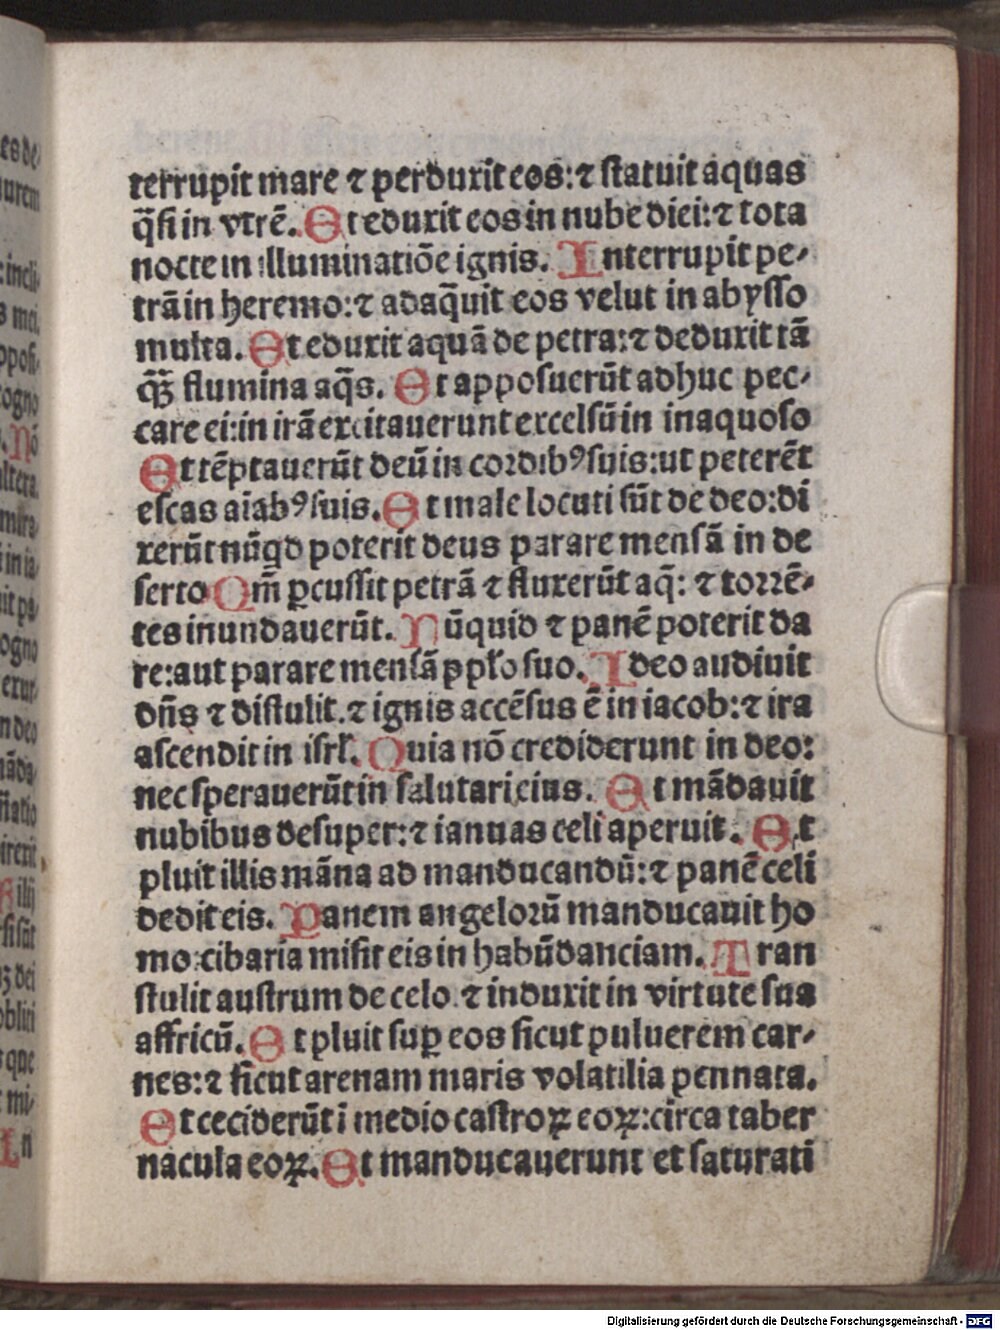 terrupit mare ⁊ perduxit eos: ⁊ statuit aquas
q̃si in vtrē. Et eduxit eos in nube diei: ⁊ tota
nocte in illuminatiōe ignis. Interrupit pe⸗
trā in heremo: ⁊ adaq̃uit eos velut in abysso
multa. Et eduxit aquā de petra: ⁊ deduxit tā
qꝫ̃ flumina aq̃s. Et apposuerūt adhuc pec⸗
care ei: in irā excitauerunt excelsū in inaquoso
Et tēptauerūt deū in cordibꝰ suis: ut peterēt
escas aīabꝰ suis. Et male locuti sūt de deo: di
xerūt nūqd poterit deus parare mensā in de
serto Qm̄ ꝑcussit petrā ⁊ fluxerūt aq̄: ⁊ torrē⸗
tes inundauerūt. Nūquid ⁊ panē poterit da
re: aut parare mensā ꝓ pl̄o suo. Ideo audiuit
dn̄s ⁊ distulit. ⁊ ignis accēsus ē in iacob: ⁊ ira
ascendit in isrl̄. Quia nō crediderunt in deo:
nec sperauerūt in salutari eius. Et mādauit
nubibus desuper: ⁊ ianuas celi aperuit. Et
pluit illis māna ad manducandū: ⁊ panē celi
dedit eis. Panem angelorū manducauit ho
mo: cibaria misit eis in habūdanciam. Tran
stulit austrum de celo. ⁊ induxit in virtute sua
affricū. Et pluit suꝑ eos sicut puluerem car⸗
nes: ⁊ sicut arenam maris volatilia pennata.
Et ceciderūt ī medio castroꝝ eoꝝ: circa taber
nacula eoꝝ. Et manducauerunt et saturati
Digitalisierung gefördert durch die Deutsche Forschungsgemeinschaft - DFG